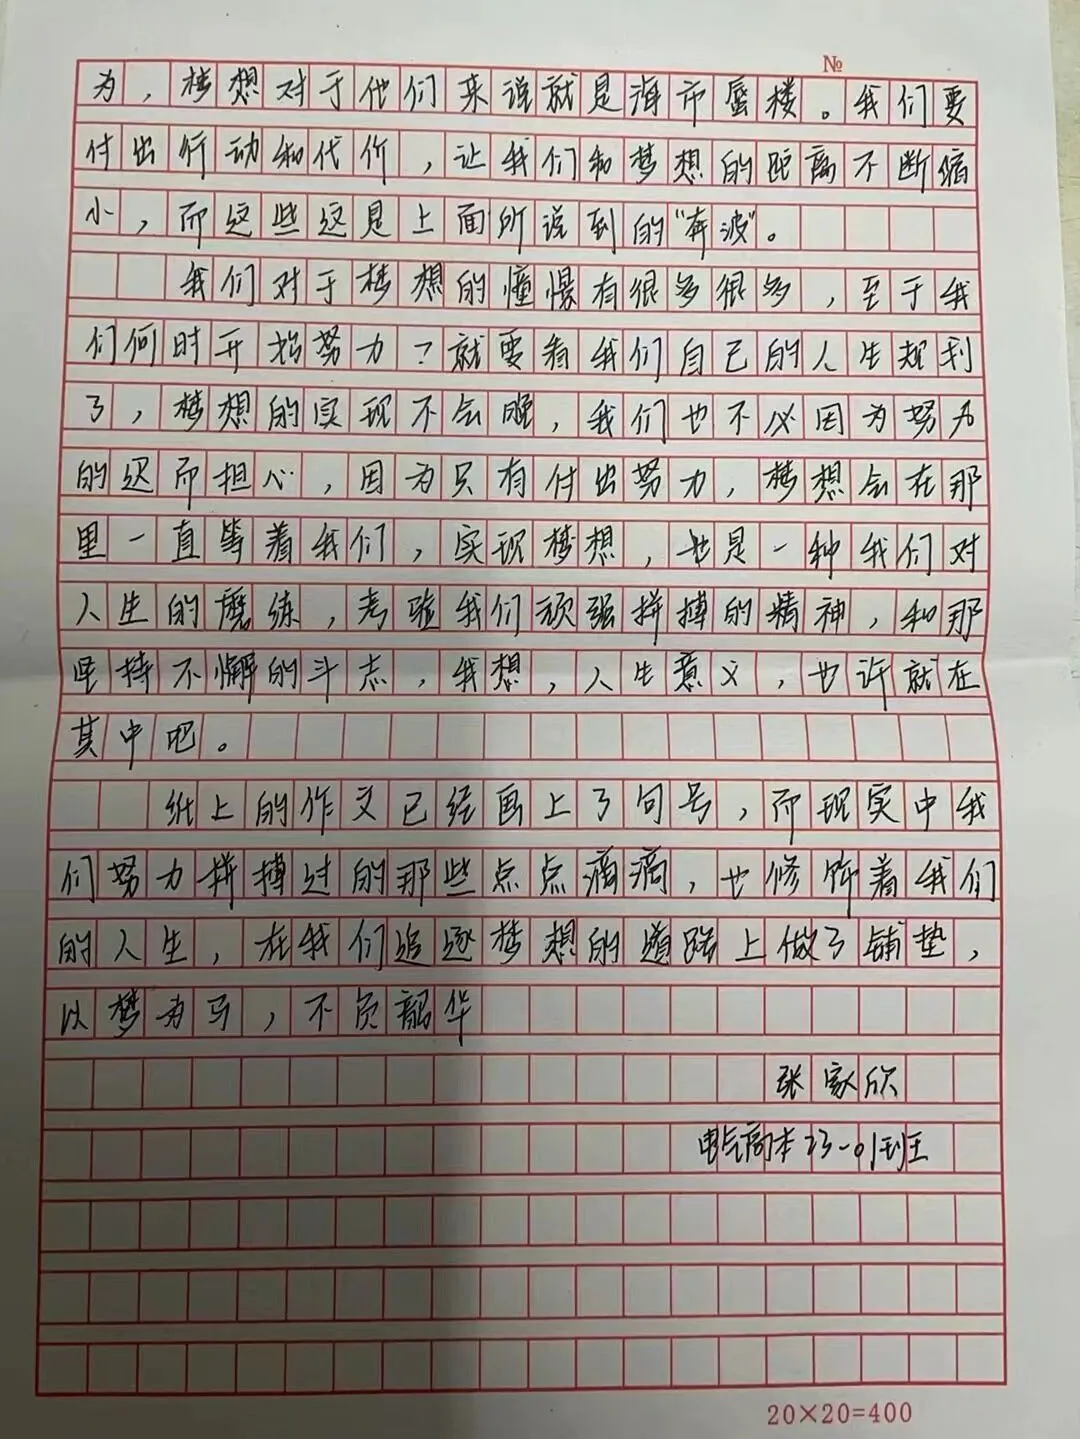 №
为，梦想对于他们来说就是海市蜃楼。我们要
付出行动和代价，让我们和梦想的距离不断缩
小，而这些这是上面所说到的“奔波”。
我们对于梦想的憧憬有很多很多，至于我
们何时开始努力？就要看我们自己的人生规划
了，梦想的实现不会晚，我们也不必因为努力
的迟而担心，因为只有付出努力，梦想会在那
里一直等着我们，实现梦想，也是一种我们对
人生的磨练，考验我们顽强拼搏的精神，和那
坚持不懈的斗志，我想，人生意义，也许就在
其中吧。
纸上的作文已经画上了句号，而现实中我
们努力拼搏过的那些点点滴滴，也修饰着我们
的人生，在我们追逐梦想的道路上做了铺垫，
以梦为马，不负韶华
张家欣
电气高本23-01班
20×20=400